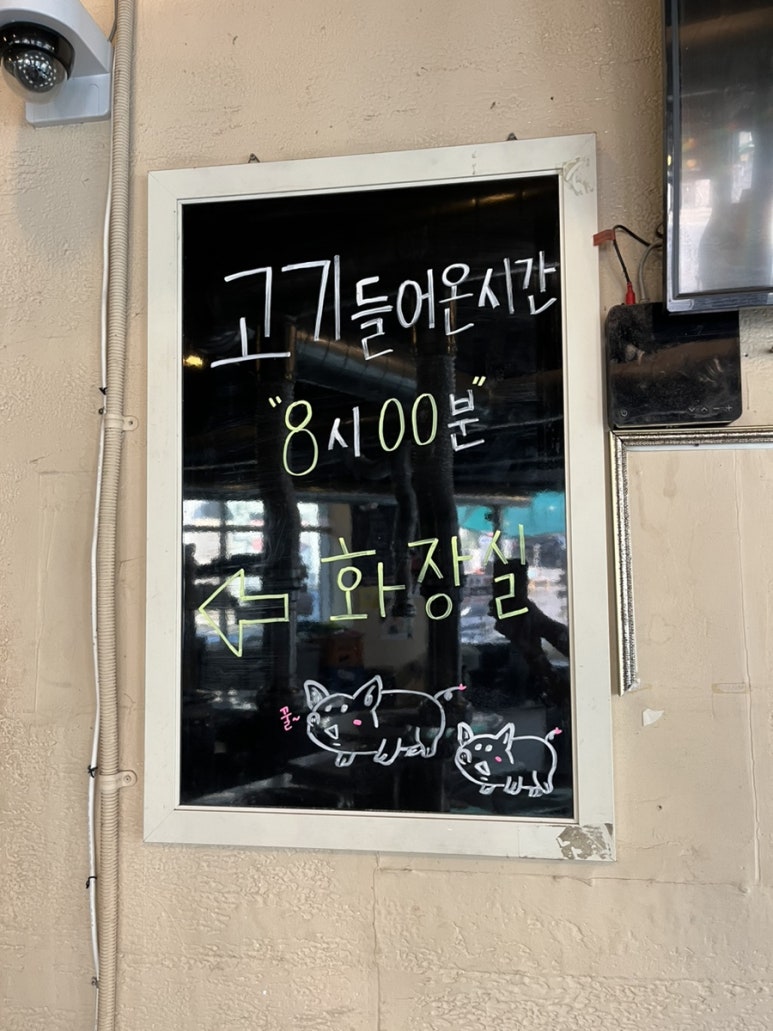 고기들어온시간
"8시00분"
화장실
꿀~